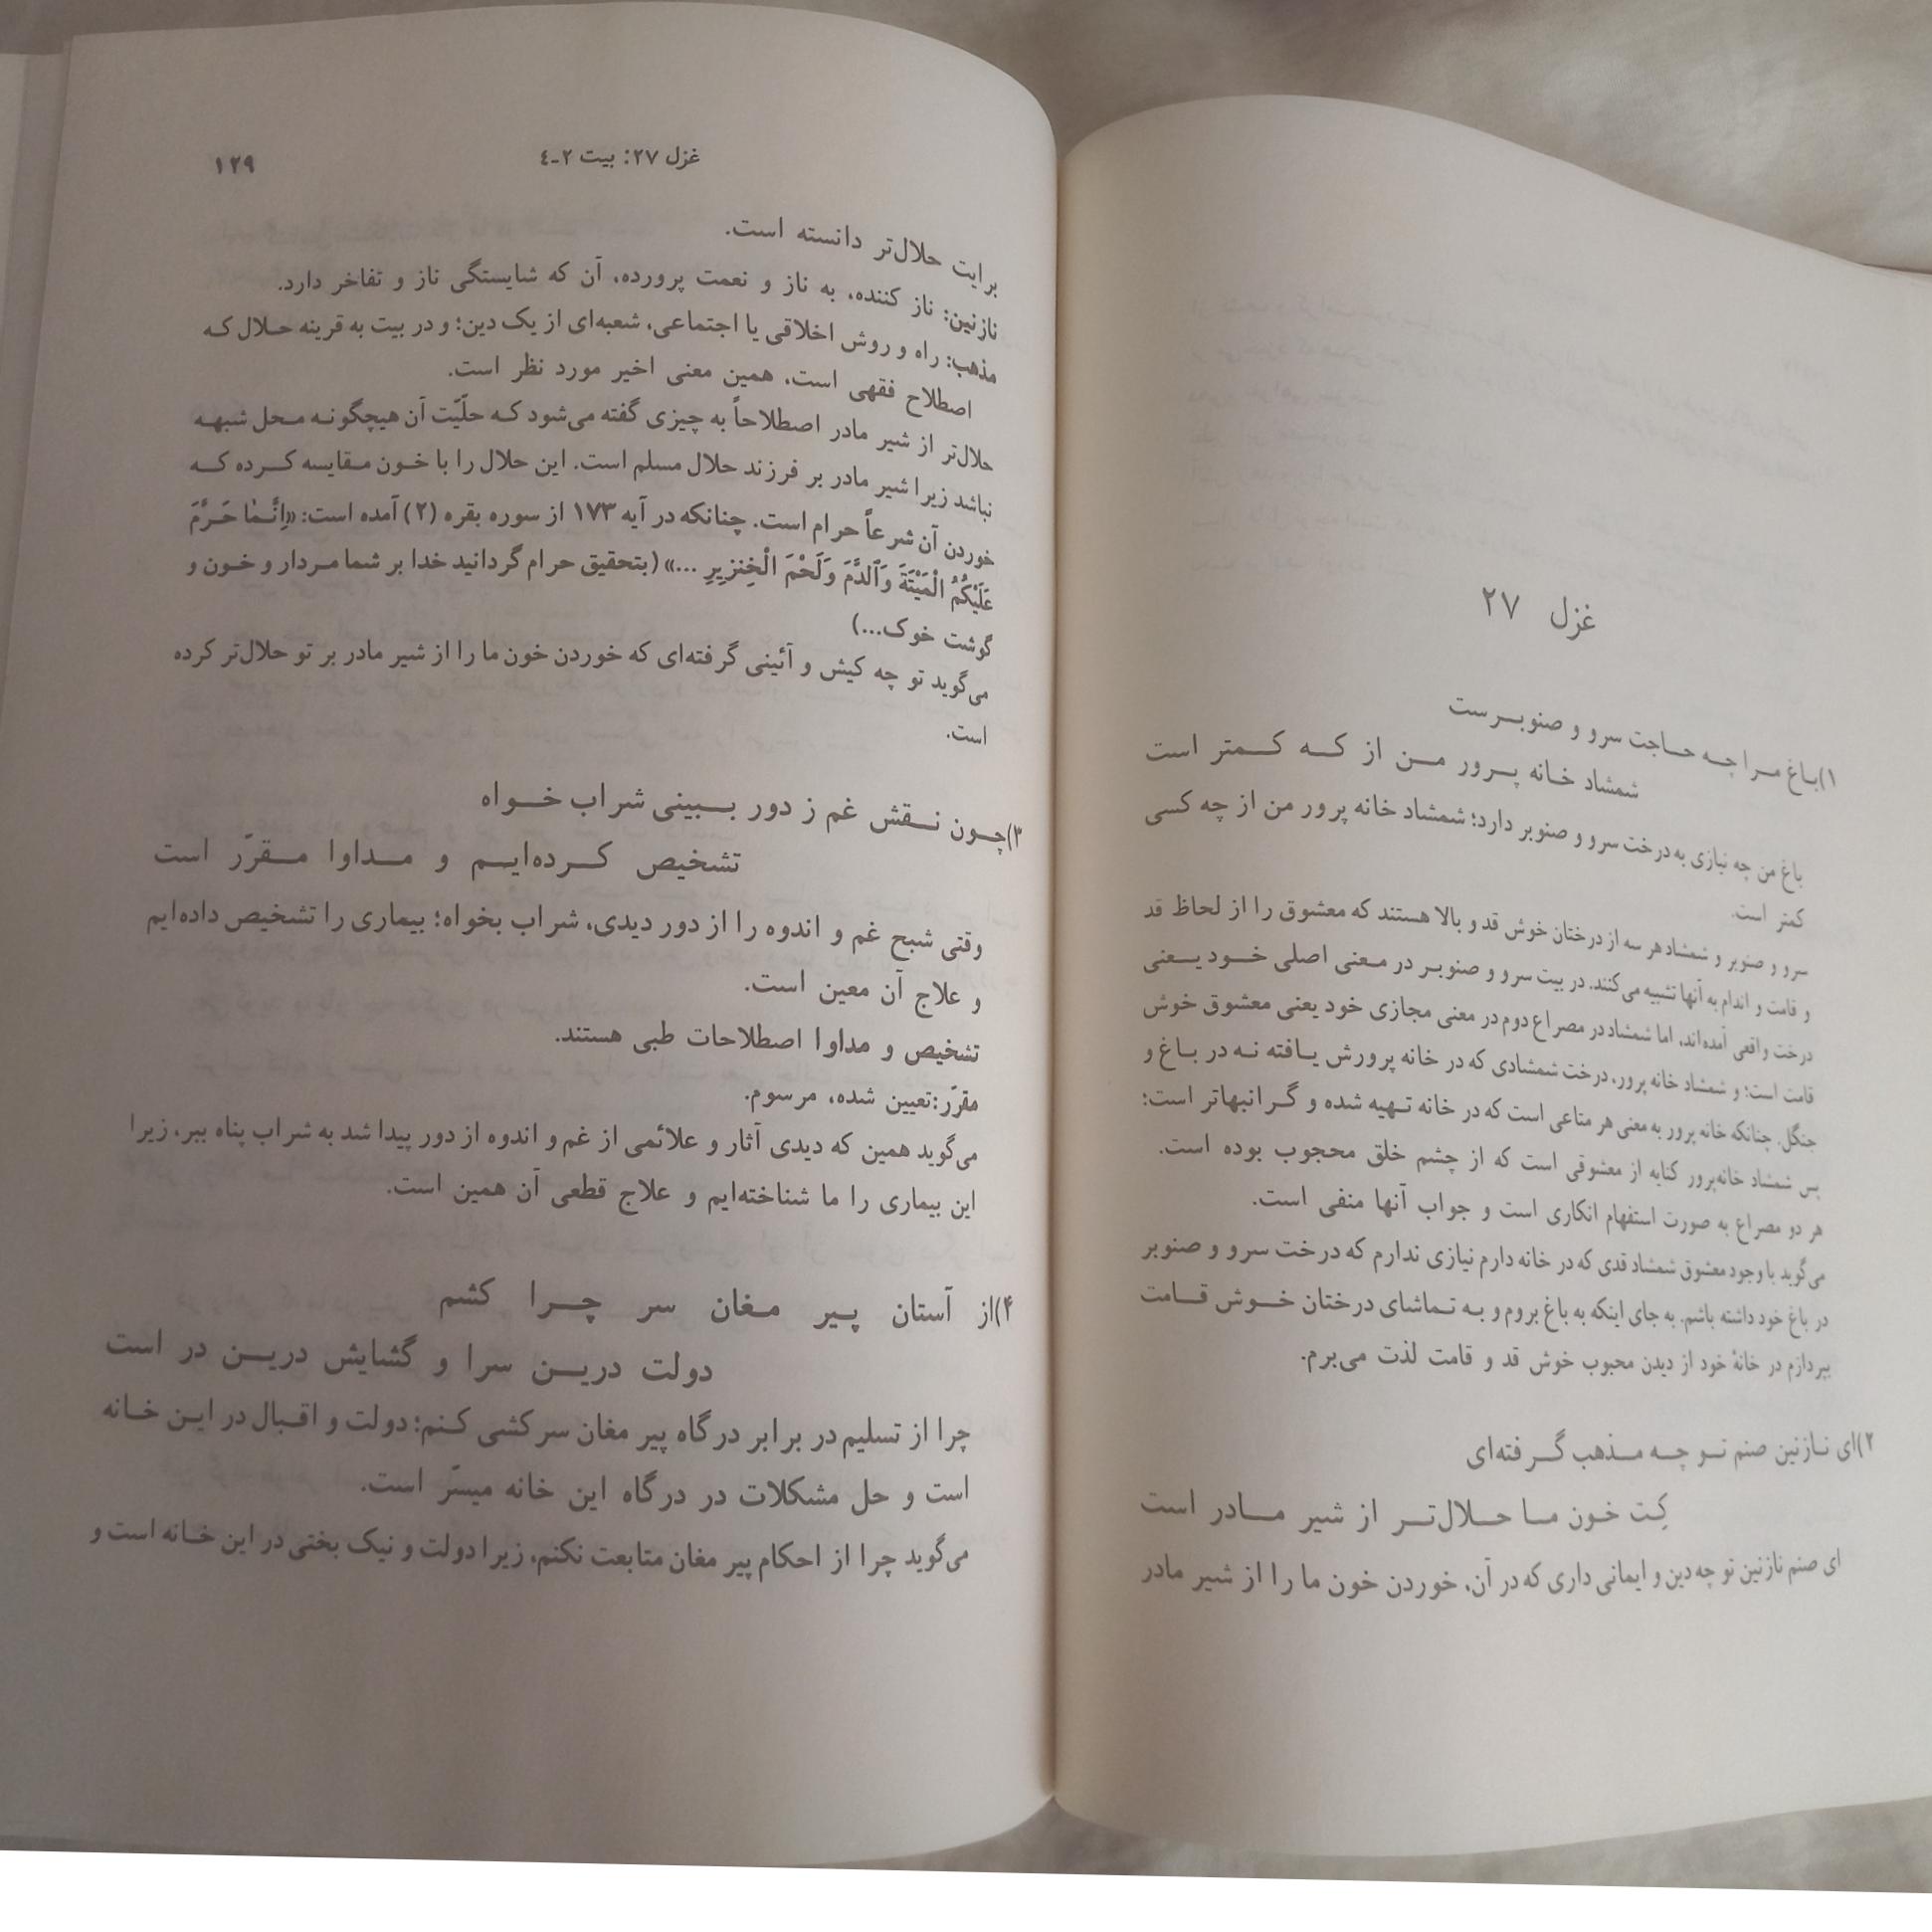 غزل ۲۷
۱)باغ مرا چه حاجت سرو و صنوبرست
شمشاد خانه پرور من از که کمتر است
باغ من چه نیازی به درخت سرو و صنوبر دارد؛ شمشاد خانه پرور من از چه کسی
کمتر است.
سرو و صنوبر و شمشاد هر سه از درختان خوش قد و بالا هستند که معشوق را از لحاظ قد
و قامت و اندام به آنها تشبیه می‌کنند. در بیت سرو و صنوبر در معنی اصلی خود یعنی
درخت واقعی آمده‌اند، اما شمشاد در مصراع دوم در معنی مجازی خود یعنی معشوق خوش
قامت است؛ و شمشاد خانه پرور، درخت شمشادی که در خانه پرورش یافته نه در باغ و
جنگل. چنانکه خانه پرور به معنی هر متاعی است که در خانه تهیه شده و گرانبهاتر است؛
پس شمشاد خانه‌پرور کنایه از معشوقی است که از چشم خلق محجوب بوده است.
هر دو مصراع به صورت استفهام انکاری است و جواب آنها منفی است.
می‌گوید با وجود معشوق شمشاد قدی که در خانه دارم نیازی ندارم که درخت سرو و صنوبر
در باغ خود داشته باشم. به جای اینکه به باغ بروم و به تماشای درختان خوش قامت
بپردازم در خانهٔ خود از دیدن محبوب خوش قد و قامت لذت می‌برم.
۲)ای نازنین صنم تو چه مذهب گرفته‌ای
کِت خون ما حلال‌تر از شیر مادر است
ای صنم نازنین تو چه دین و ایمانی داری که در آن، خوردن خون ما را از شیر مادر
غزل ۲۷: بیت ۲-٤
۱۲۹
برایت حلال‌تر دانسته است.
نازنین: ناز کننده، به ناز و نعمت پرورده، آن که شایستگی ناز و تفاخر دارد.
مذهب: راه و روش اخلاقی یا اجتماعی، شعبه‌ای از یک دین؛ و در بیت به قرینه حلال که
اصطلاح فقهی است، همین معنی اخیر مورد نظر است.
حلال‌تر از شیر مادر اصطلاحاً به چیزی گفته می‌شود که حلّیّت آن هیچگونه محل شبهه
نباشد زیرا شیر مادر بر فرزند حلال مسلم است. این حلال را با خون مقایسه کرده که
خوردن آن شرعاً حرام است. چنانکه در آیه ۱۷۳ از سوره بقره (۲) آمده است: «اِنَّمٰا حَرَّمَ
عَلَیْکُمُ الْمَیْتَةَ وَٱلدَّمَ وَلَحْمَ الْخِنزِیرِ ...» (بتحقیق حرام گردانید خدا بر شما مردار و خون و
گوشت خوک...)
می‌گوید تو چه کیش و آئینی گرفته‌ای که خوردن خون ما را از شیر مادر بر تو حلال‌تر کرده
است.
۳)چون نقش غم ز دور ببینی شراب خواه
تشخیص کرده‌ایم و مداوا مقرّر است
وقتی شبح غم و اندوه را از دور دیدی، شراب بخواه؛ بیماری را تشخیص داده‌ایم
و علاج آن معین است.
تشخیص و مداوا اصطلاحات طبی هستند.
مقرّر:تعیین شده، مرسوم.
می‌گوید همین که دیدی آثار و علائمی از غم و اندوه از دور پیدا شد به شراب پناه ببر، زیرا
این بیماری را ما شناخته‌ایم و علاج قطعی آن همین است.
۴)از آستان پیر مغان سر چرا کشم
دولت درین سرا و گشایش درین در است
چرا از تسلیم در برابر درگاه پیر مغان سرکشی کنم؛ دولت و اقبال در این خانه
است و حل مشکلات در درگاه این خانه میسّر است.
می‌گوید چرا از احکام پیر مغان متابعت نکنم، زیرا دولت و نیک بختی در این خانه است و